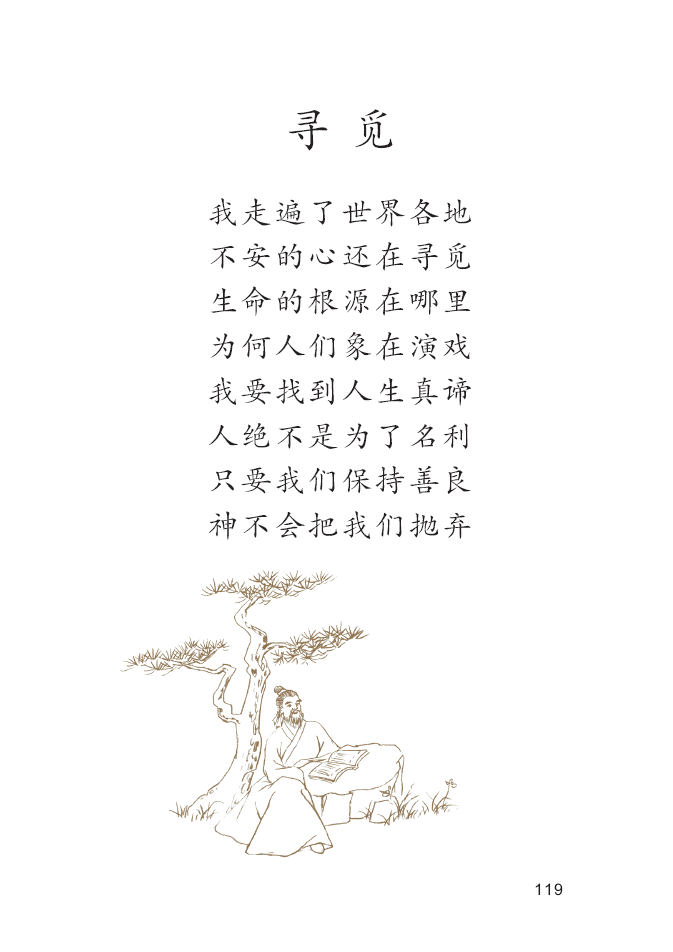 寻觅
我走遍了世界各地
不安的心还在寻觅
生命的根源在哪里
为何人们象在演戏
我要找到人生真谛
人绝不是为了名利
只要我们保持善良
神不会把我们抛弃
119